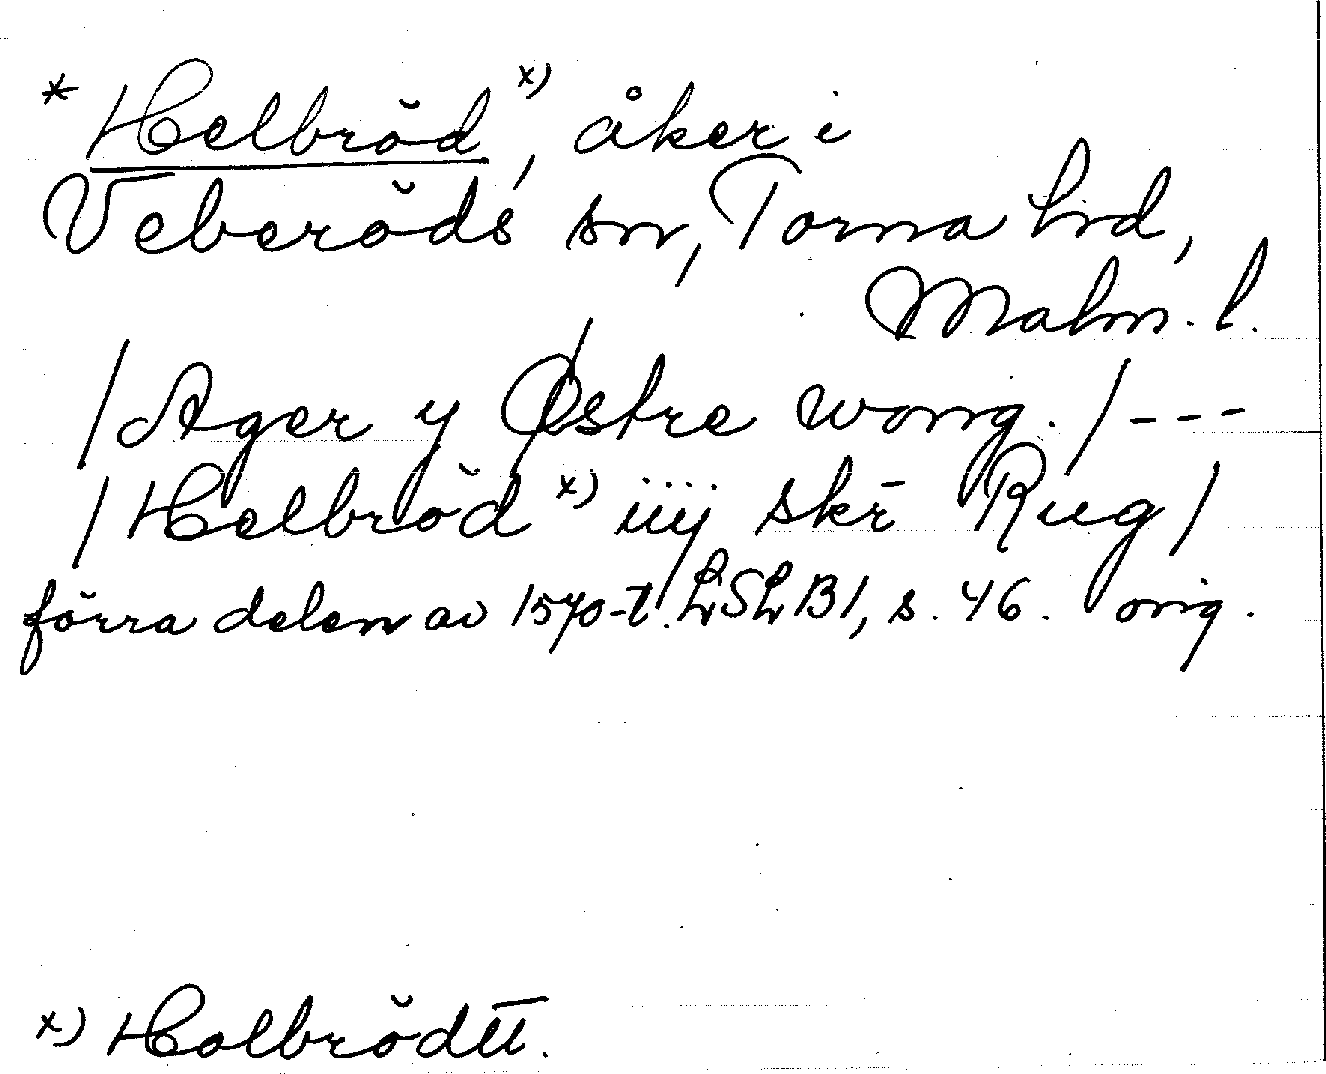 * Helbröd x), åker i
Veberöds sn, Torna hd,
Malm. l.
/Ager y Østre wong./---
/Helbröd x) iiij skr̄ Rug/
förra delen av 1570-t. LSLB1, s. 46. orig.
x) Holbrödtt.